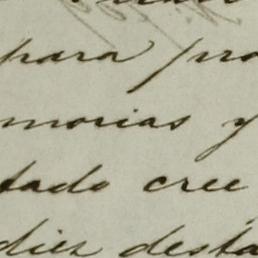 para pro
morias y
tado cree
diez desta